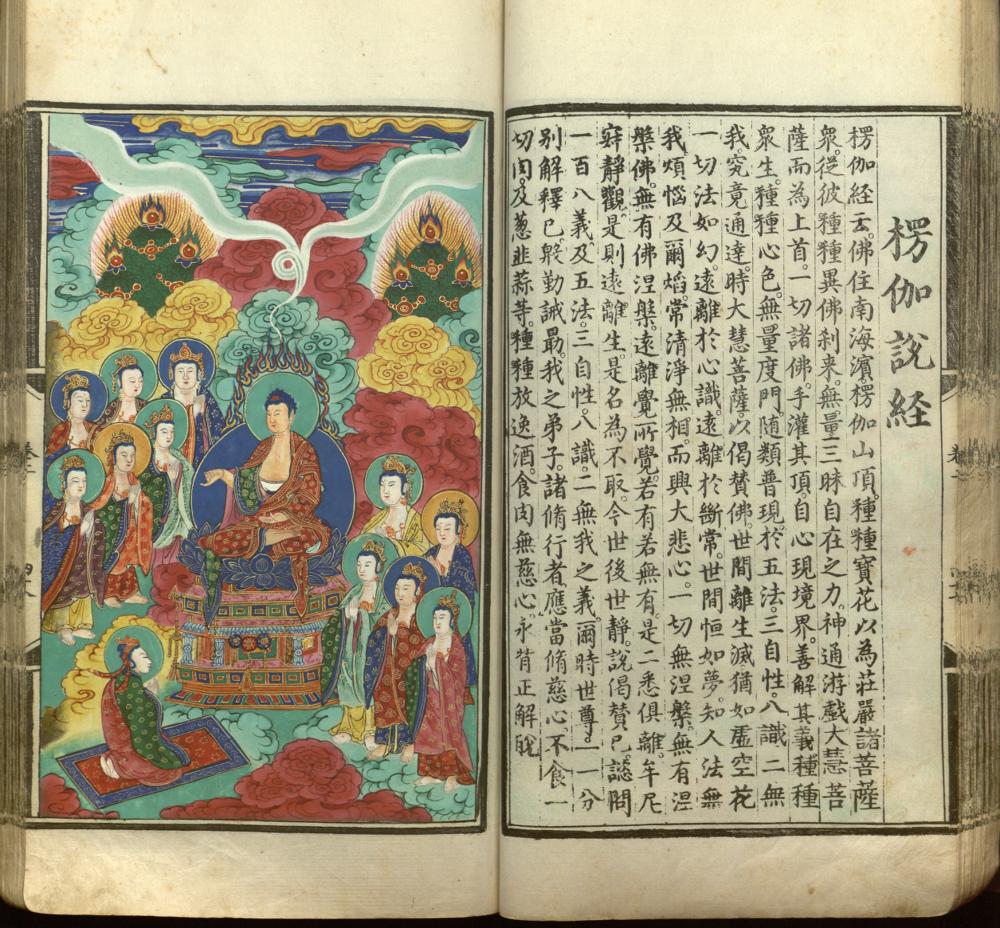 楞伽說經
楞伽經云。佛住南海濱。楞伽山頂。種種寶花以為莊嚴諸菩薩
衆。從彼種種異佛刹来。無量三昧自在之力。神通游戲大慧菩
薩而為上首。一切諸佛。手灌其頂。自心現境界。善解其義種種
衆生。種種心色。無量度門。随類普現。於五法。三自性。八識二無
我。究竟通達。時大慧菩薩。以偈賛佛。世間離生滅猶如虛空花
一切法如幻。遠離於心識。遠離於斷常。世間恒如夢。知人法無
我。煩惱及爾焰。常清淨無相。而興大悲心。一切無涅槃。無有涅
槃佛。無有佛涅槃。遠離覺所覺。若有若無有。是二悉俱離。牟尼
寂靜觀。是則遠離生。是名為不取。今世後世靜。說偈賛已。諮問
一百八義。及五法。三自性。八識。二無我之義。爾時世尊。一一分
別解釋已。殷勤誡勗。我之弟子。諸脩行者。應當脩慈心。不食一
切肉。及葱韭蒜等。種種放逸酒。食肉無慈心。永背正解脫
卷二